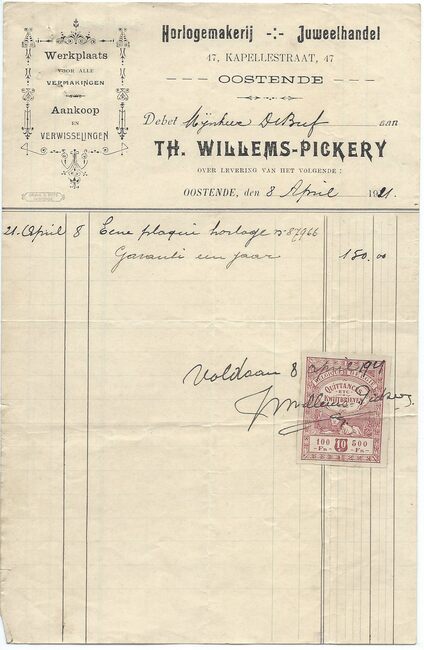 Werkplaats
VOOR ALLE
VERMAKINGEN
Aankoop
EN
VERWISSELINGEN
Horlogemakerij -:- Juweelhandel
47, KAPELLESTRAAT, 47
OOSTENDE
Debet Mijnheer De Bref aan
TH. WILLEMS-PICKERY
OVER LEVERING VAN HET VOLGENDE :
OOSTENDE, den 8 April 1921.
21. April 8 Eene plaqué horloge n° 87966
Garanti een jaar 150.00
Voldaan 8 april 1921
Willems Pickery
QUITTANCES
ETC
KWIJTBRIEVEN
100 10 500
Fn Fn